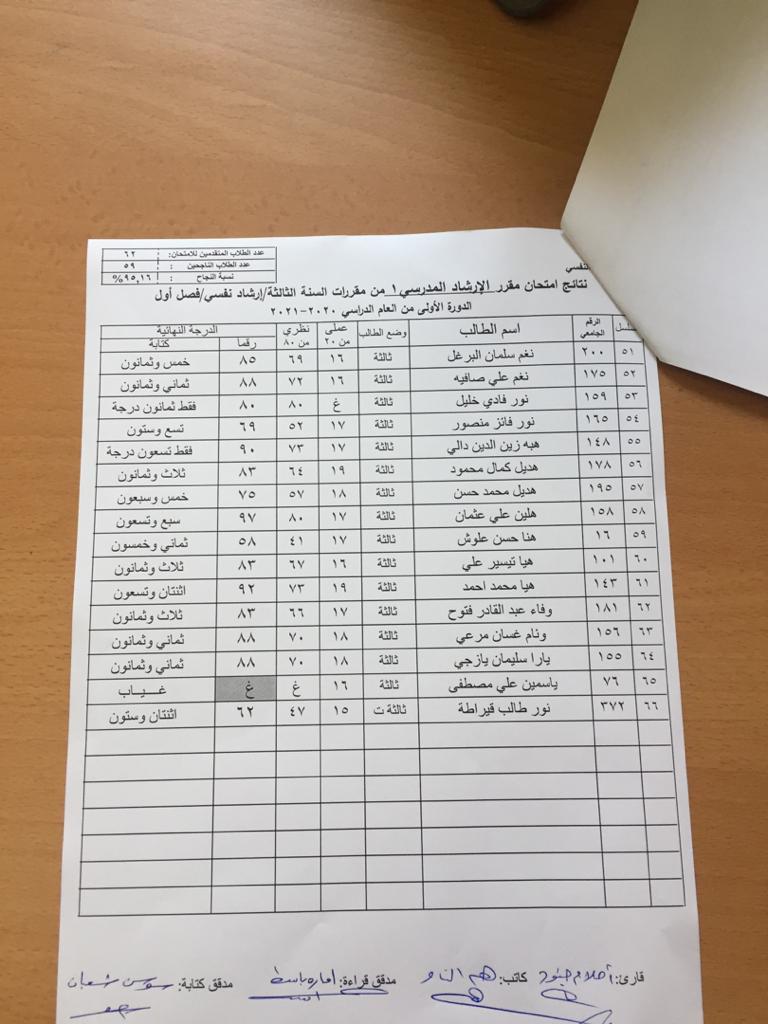 عدد الطلاب المتقدمين للامتحان: ٦٢
عدد الطلاب الناجحين : ٥٩
نسبة النجاح : ٩٥,١٦%
نفسي
نتائج امتحان مقرر الإرشاد المدرسي ١ من مقررات السنة الثالثة/إرشاد نفسي/فصل أول
الدورة الأولى من العام الدراسي ٢٠٢٠-٢٠٢١
الرقم الجامعي اسم الطالب وضع الطالب عملي من ٢٠ نظري من ٨٠ الدرجة النهائية
رقما كتابة
٥١ ٢٠٠ نغم سلمان البرغل ثالثة ١٦ ٦٩ ٨٥ خمس وثمانون
٥٢ ١٧٥ نغم علي صافيه ثالثة ١٦ ٧٢ ٨٨ ثماني وثمانون
٥٣ ١٥٩ نور فادي خليل ثالثة غ ٨٠ ٨٠ فقط ثمانون درجة
٥٤ ١٦٥ نور فائز منصور ثالثة ١٧ ٥٢ ٦٩ تسع وستون
٥٥ ١٤٨ هبه زين الدين دالي ثالثة ١٧ ٧٣ ٩٠ فقط تسعون درجة
٥٦ ١٧٨ هديل كمال محمود ثالثة ١٩ ٦٤ ٨٣ ثلاث وثمانون
٥٧ ١٩٥ هديل محمد حسن ثالثة ١٨ ٥٧ ٧٥ خمس وسبعون
٥٨ ١٥٨ هلين علي عثمان ثالثة ١٧ ٨٠ ٩٧ سبع وتسعون
٥٩ ١٦ هنا حسن علوش ثالثة ١٧ ٤١ ٥٨ ثماني وخمسون
٦٠ ١٠١ هيا تيسير علي ثالثة ١٦ ٦٧ ٨٣ ثلاث وثمانون
٦١ ١٤٣ هيا محمد احمد ثالثة ١٩ ٧٣ ٩٢ اثنتان وتسعون
٦٢ ١٨١ وفاء عبد القادر فتوح ثالثة ١٧ ٦٦ ٨٣ ثلاث وثمانون
٦٣ ١٥٦ وئام غسان مرعي ثالثة ١٨ ٧٠ ٨٨ ثماني وثمانون
٦٤ ١٥٥ يارا سليمان يازجي ثالثة ١٨ ٧٠ ٨٨ ثماني وثمانون
٦٥ ٧٦ ياسمين علي مصطفى ثالثة ١٦ غ غ غـــيـــاب
٦٦ ٣٧٢ نور طالب قيراطة ثالثة ت ١٥ ٤٧ ٦٢ اثنتان وستون
قارئ: أحلام كاتب: مدقق قراءة: مدقق كتابة: سوسن شعبان